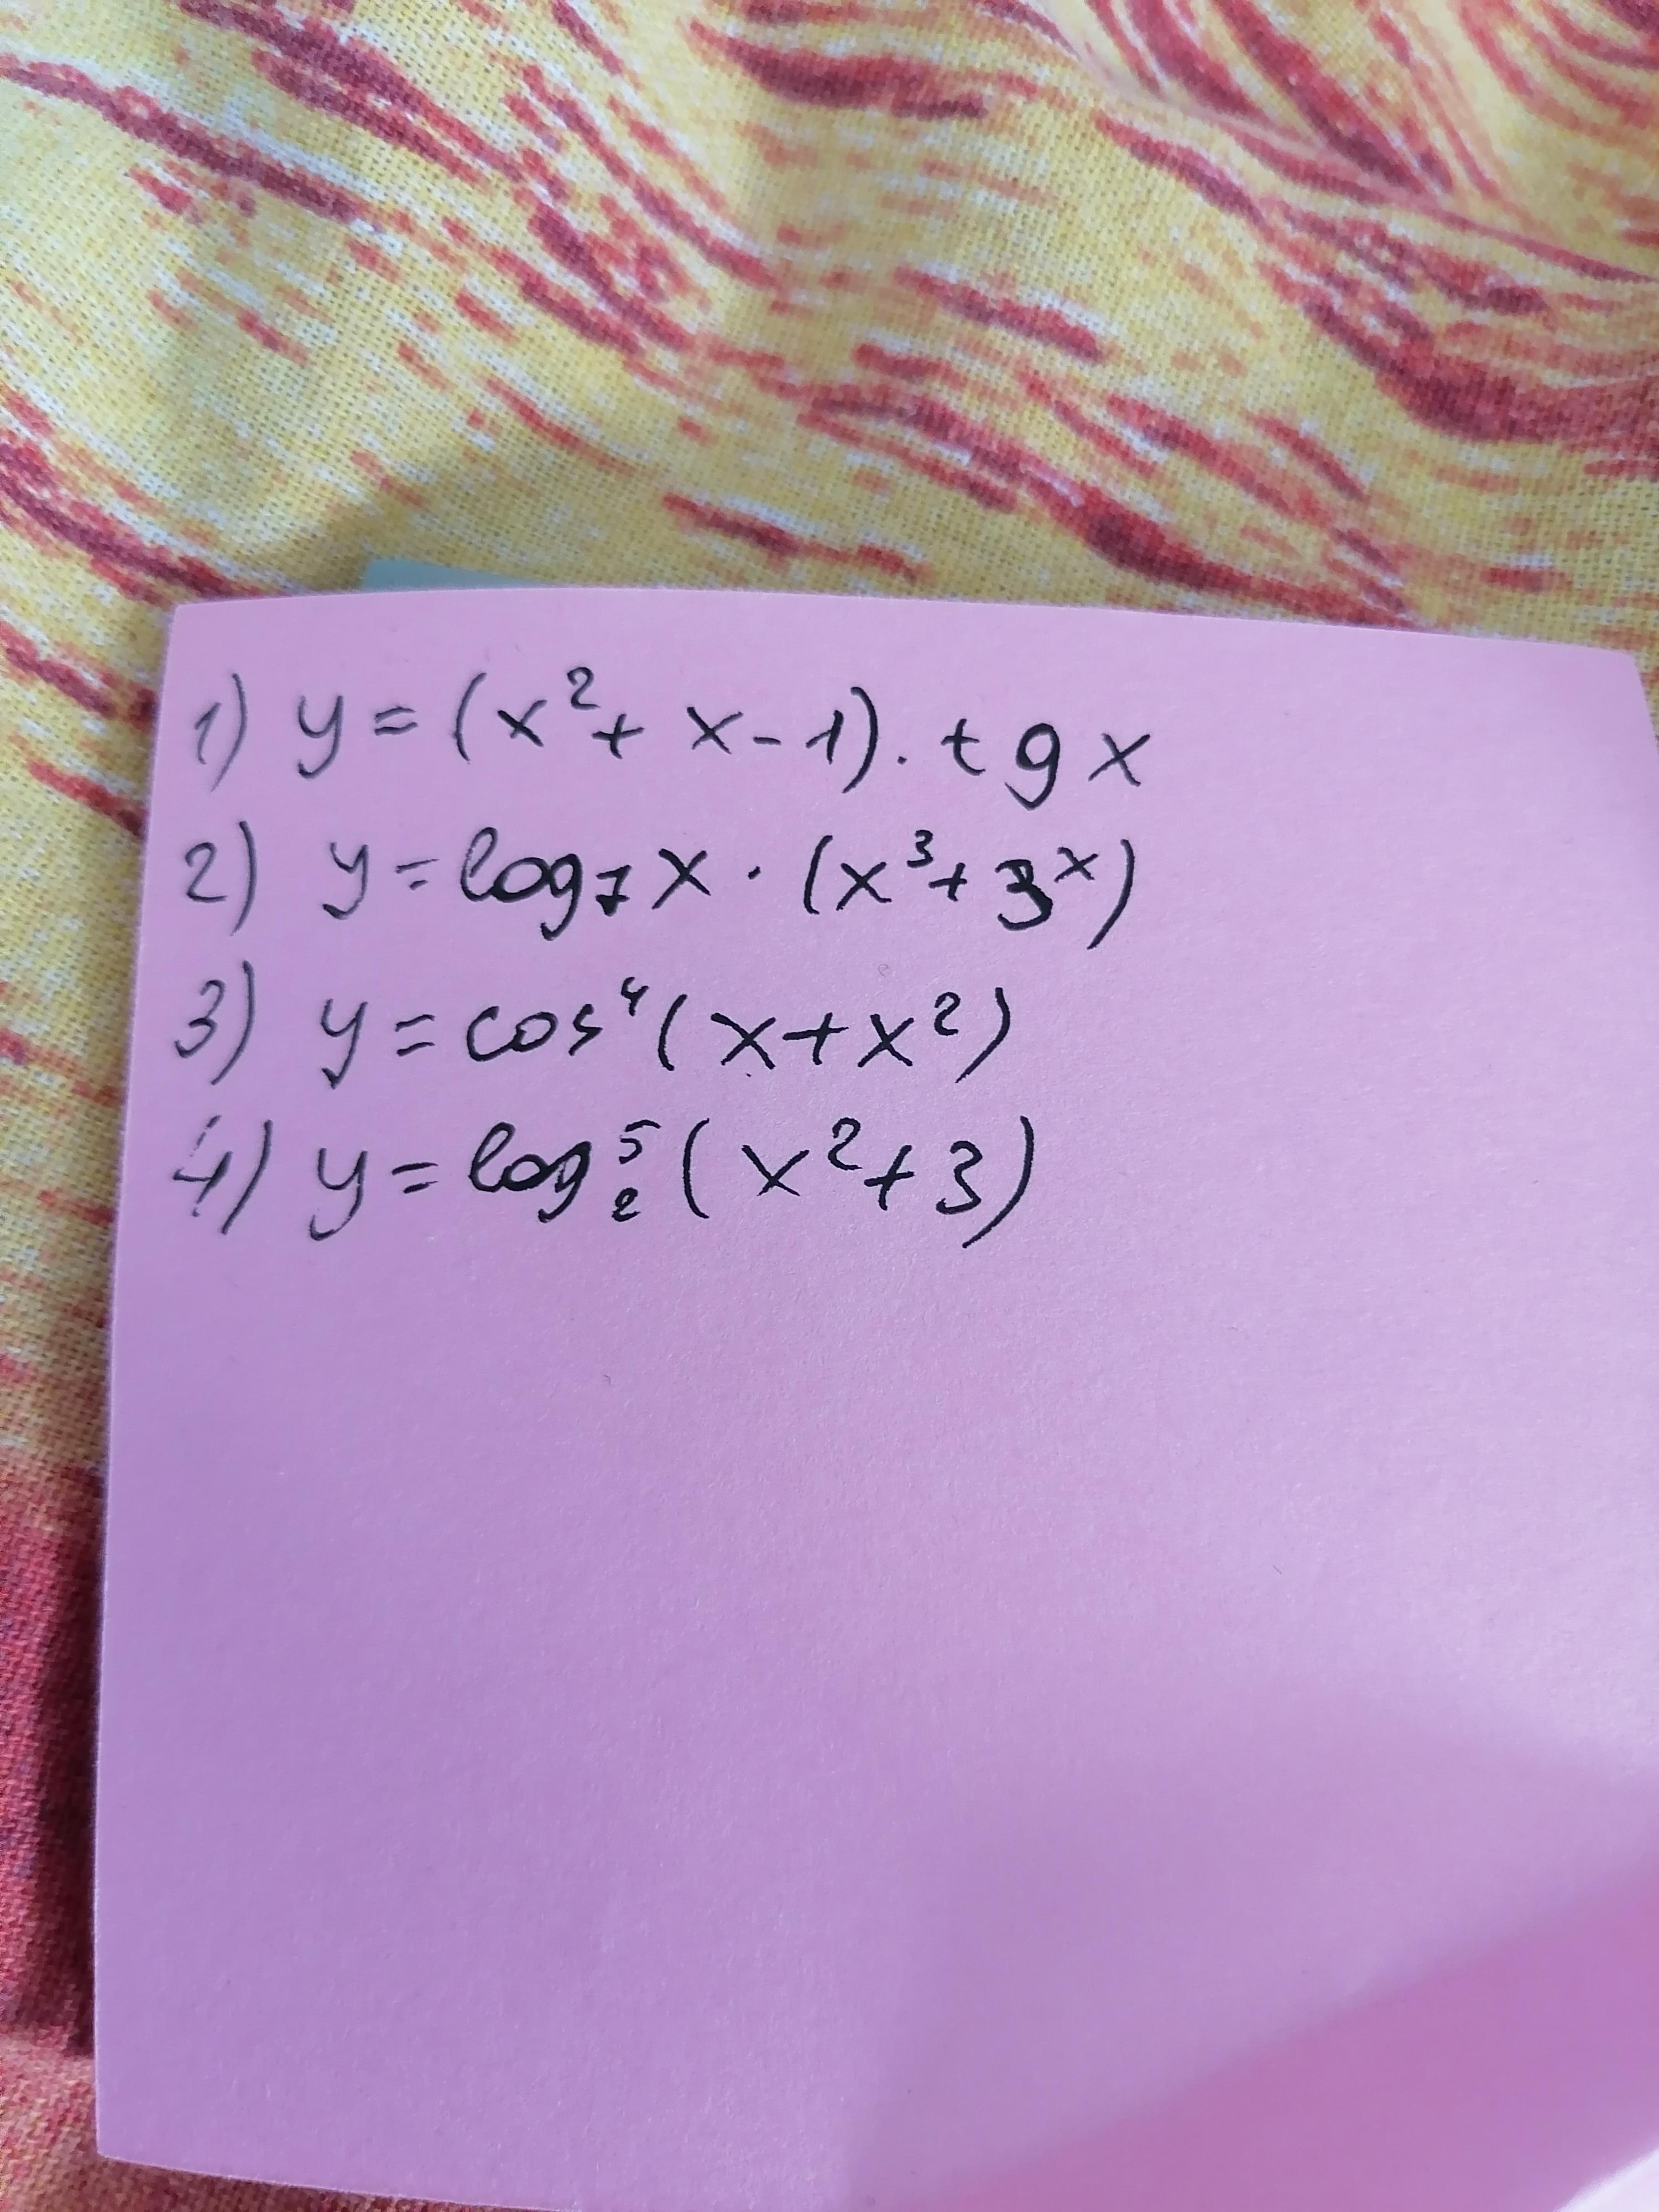 1) y = (x² + x - 1) · tg x
2) y = log₇ x · (x³ + 3ˣ)
3) y = cos⁴ (x + x²)
4) y = log₂⁵ (x² + 3)